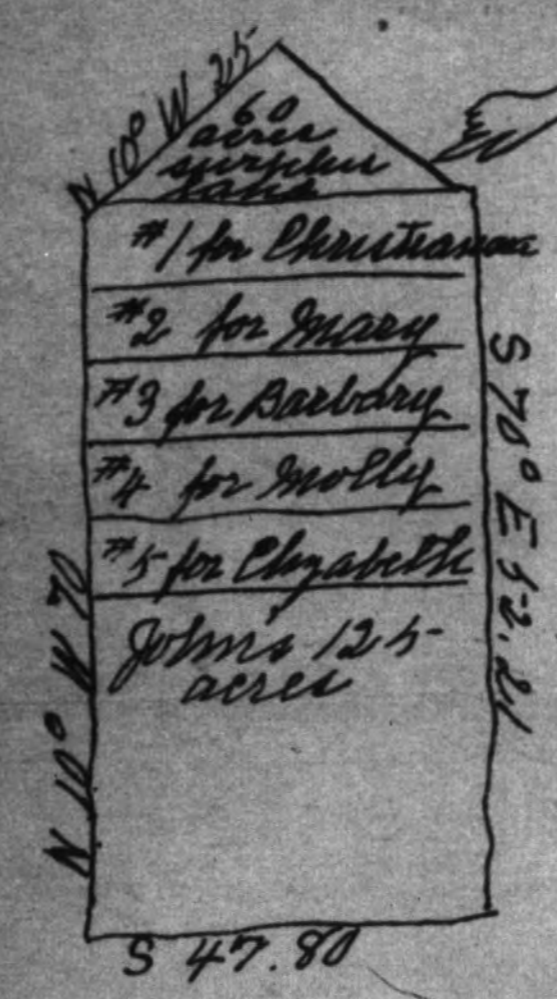 N 10° W 25
60
acres
surplus
land
#1 for Christianna
#2 for Mary
#3 for Barbary
#4 for Molly
#5 for Elizabeth
John's 125
acres
S 70° E 52.21
N 10° W 70
S 47.80